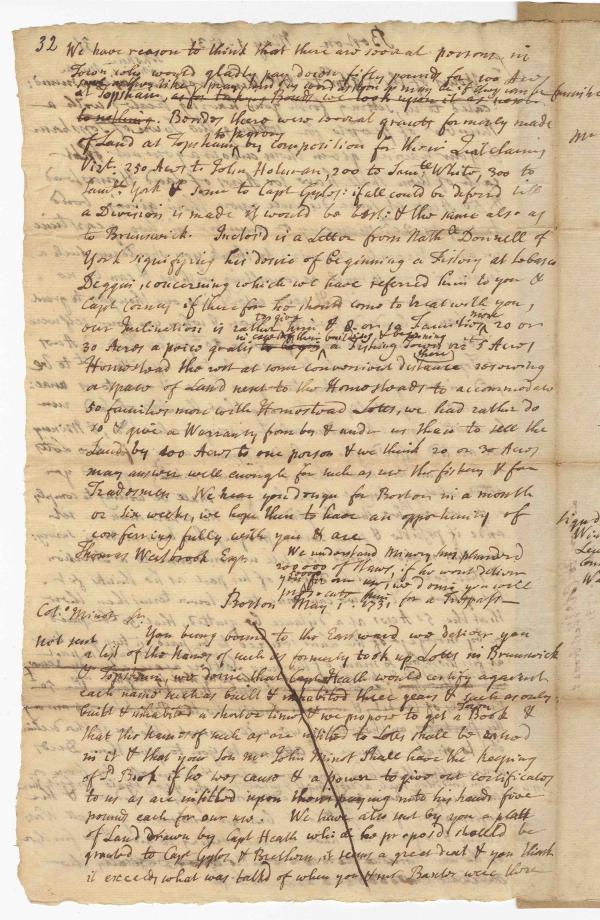 32 We have reason to think that there are several persons in
Town who would gladly pay down fifty pounds for 100 Acres
at Topsham, as for taking Bonds we look upon it as next
to nothing. Besides there were several grants formerly made
of Land at Topsham to persons by composition for their claims
Vizt. 250 Acres to John Holman, 200 to Saml. White, 300 to
Saml. York & some to Capt Gyles: if all could be defered till
a Division is made it would be best: & the same also as
to Brunswick. Inclos'd is a Letter from Nathl Donnell of
York signifying his desire of beginning a Fishery at Sebasco
Deggin, concerning which we have referred him to you &
Capt if therefore he should come to treat with you,
our Inclination is rather to give him & 8 or 10 Families more 20 or
30 Acres a peice gratis to begin a Fishing Town viz 5 Acres
Homestead the rest at some convenient distance reserving
a space of Land next to the Homesteads to accommodate
50 families more with Homestead Lotts, we had rather do
so & give a Warranty from by & under us than to sell the
Land by 100 Acres to one person & we think 20 or 30 Acres
may answer well enough for such as use the fishery & for
Tradesmen We hear you design for Boston in a month
or six weeks, we hope then to have an opportunity of
conferring fully with you & are
Thomas Westbrook Esqr We understand Minory has plundered
of Staves, if he wont deliver
we desire you will
for a Trespass
Boston May 1. 1731.
Colo. Minot Sr.
not sent You being bound to the Eastward we deliver you
a list of the names of such as formerly took up Lotts in Brunswick
& Topsham, we desire that Capt Heath would certify against
each name such as built & inhabited three years & such as only
built & inhabited a shorter time, & we propose to get a Town Book &
that the names of such as are intitled to Lotts shall be entred
in it & that your Son Mr John Minot shall have the keeping
of sd Book if he was cause & a power to give out certificates
to us as are intitled upon them paying into his hands five
pounds each for our use. We have also sent by you a platt
of Land Drawn by Capt Heath which he proposed should be
granted to Capt Gyles & Brethern, it seems a great deal & you think
it exceeds what was talked of when you & Mr Baxter were there